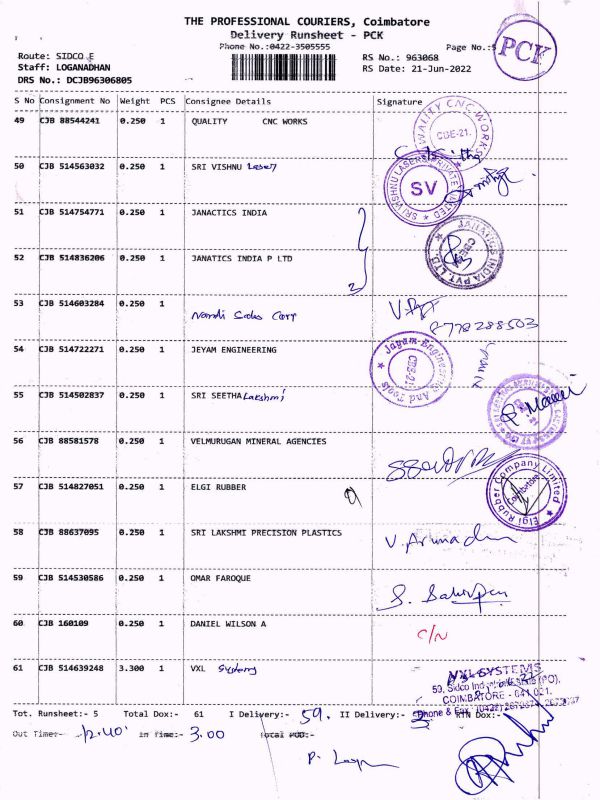 THE PROFESSIONAL COURIERS, Coimbatore
Delivery Runsheet - PCK
Phone No.:0422-3505555
Page No.:5
PCK
Route: SIDCO E
RS No.: 963068
Staff: LOGANADHAN
RS Date: 21-Jun-2022
DRS No.: DCJB96306805
S No Consignment No Weight PCS Consignee Details Signature
49 CJB 88544241 0.250 1 QUALITY CNC WORKS
QUALITY CNC WORKS CBE-21.
50 CJB 514563032 0.250 1 SRI VISHNU Laser
SRI VISHNU LASERS PRIVATE LIMITED SV
51 CJB 514754771 0.250 1 JANACTICS INDIA
JANATICS INDIA PVT. LTD.
52 CJB 514836206 0.250 1 JANATICS INDIA P LTD
2
53 CJB 514603284 0.250 1 Nandi Sales Corp
8778288503
54 CJB 514722271 0.250 1 JEYAM ENGINEERING
Jayam Engineering And Tools CBE-21
55 CJB 514502837 0.250 1 SRI SEETHA Lakshmi
56 CJB 88581578 0.250 1 VELMURUGAN MINERAL AGENCIES
57 CJB 514827051 0.250 1 ELGI RUBBER
Elgi Rubber Company Limited Coimbatore
58 CJB 88637095 0.250 1 SRI LAKSHMI PRECISION PLASTICS
59 CJB 514530586 0.250 1 OMAR FAROQUE
60 CJB 160109 0.250 1 DANIEL WILSON A
C/N
61 CJB 514639248 3.300 1 VXL Systems
VXL SYSTEMS
53, Sidco Industrial Estate (PO),
COIMBATORE - 641 021.
Tot. Runsheet:- 5 Total Dox:- 61 I Delivery:- 59. II Delivery:- RTN Dox:-
Phone & Fax
Out Time:- 12.40 in Time:- 3.00 Total POD:-